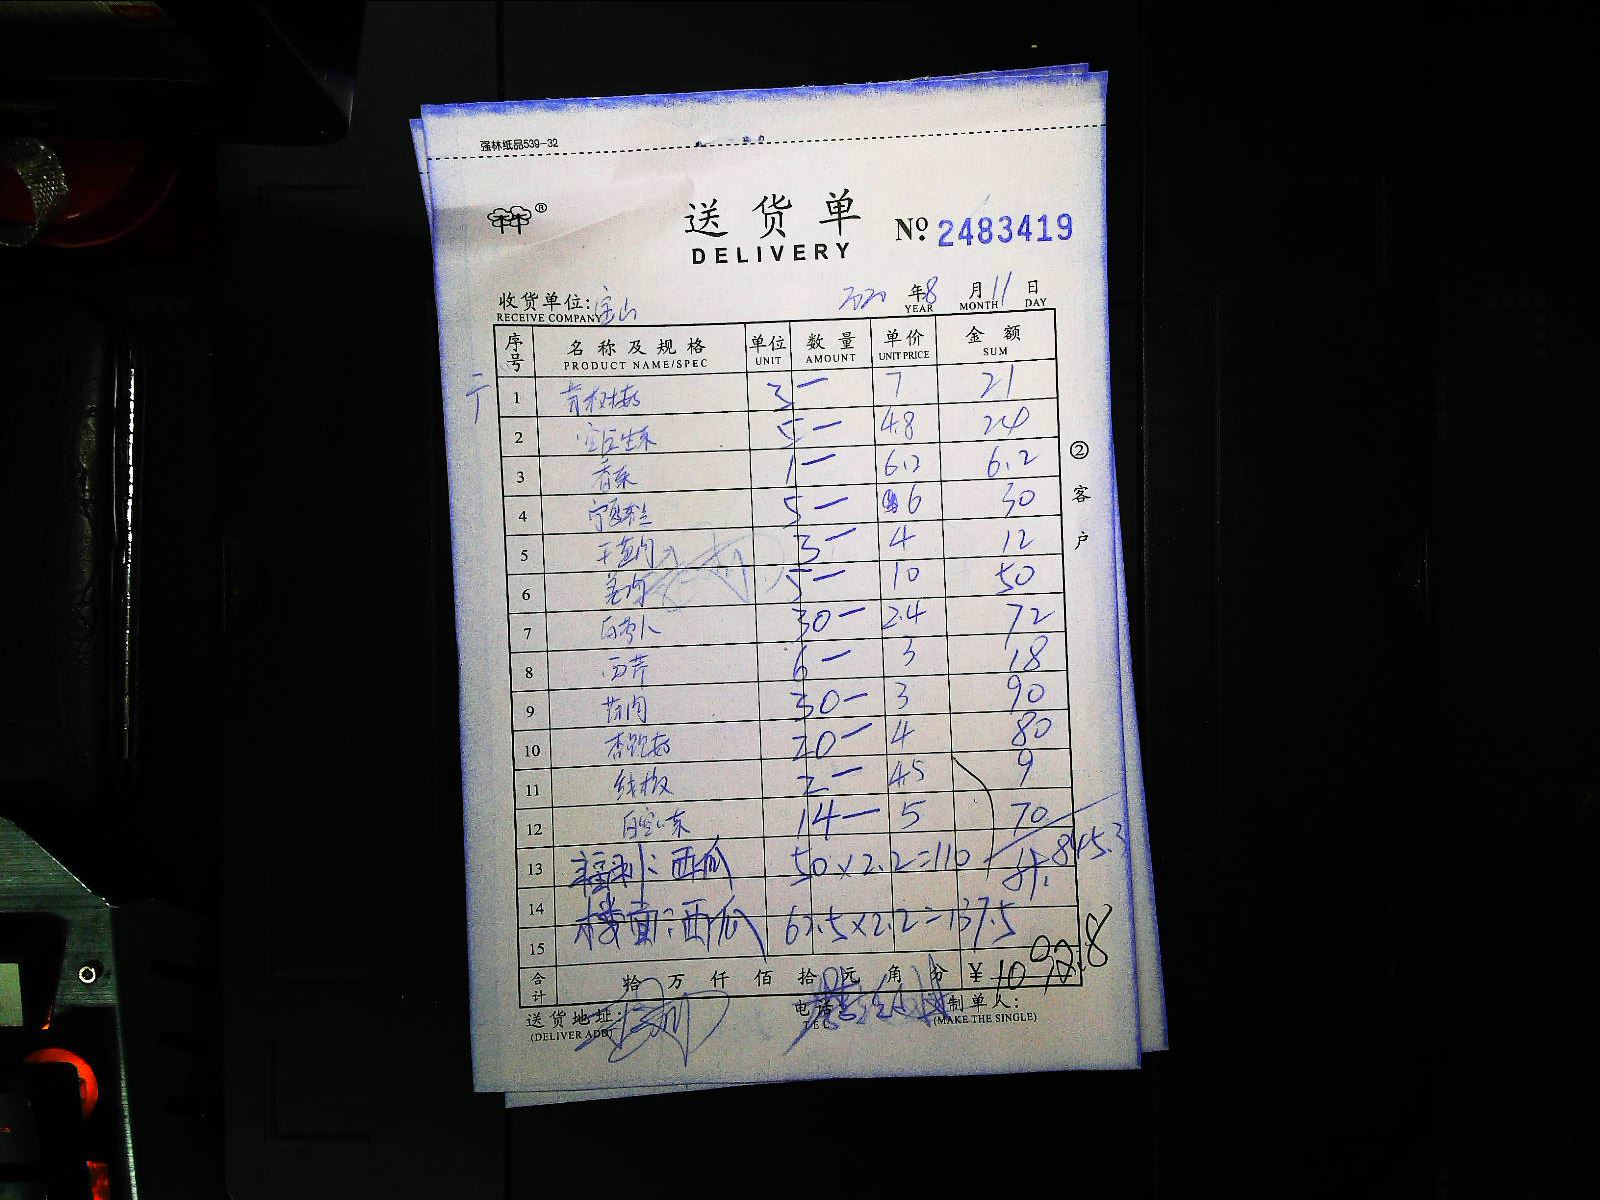 强林纸品539-32
送货单 № 2483419
DELIVERY
收货单位: 宝山 2020 年 8 月 11 日
RECEIVE COMPANY YEAR MONTH DAY
序号 名称及规格 单位 数量 单价 金额
PRODUCT NAME/SPEC UNIT AMOUNT UNIT PRICE SUM
1 3 一 7 21
2 5 一 4.8 24
3 香菜 1 一 6.2 6.2
4 5 一 6 30
5 3 一 4 12
6 5 一 10 50
7 白萝卜 30 一 2.4 72
8 西芹 6 一 3 18
9 30 一 3 90
10 杏鲍菇 20 一 4 80
11 线椒 2 一 4.5 9
12 14 一 5 70
13 福利: 西瓜 50×2.2=110 845.3
14 楼面: 西瓜 62.5×2.2=137.5
15
合计 拾 万 仟 佰 拾 元 角 分 ¥ 1092.8
送货地址: 电话 制单人:
(DELIVER ADD) TEL (MAKE THE SINGLE)
② 客户